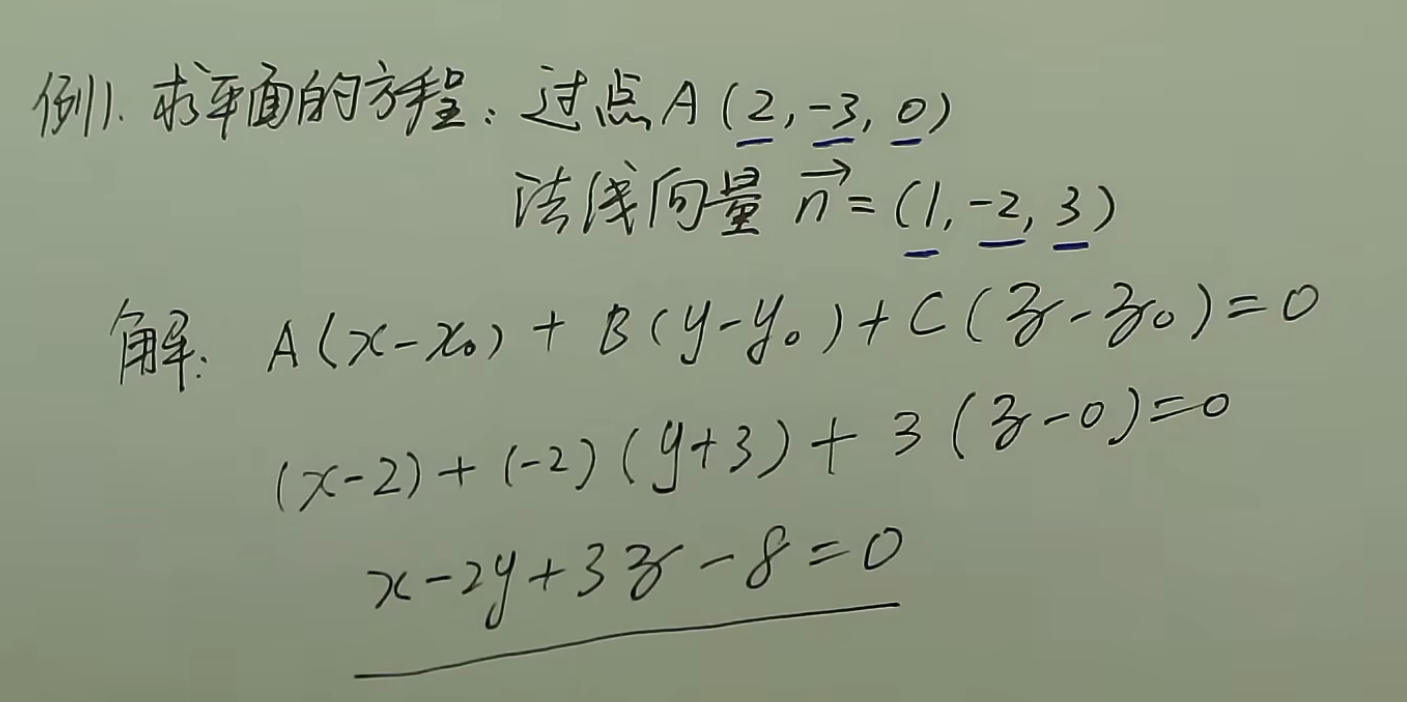 例1. 求平面的方程: 过点A(2, -3, 0)
法线向量 n⃗ = (1, -2, 3)
解: A(x-x₀) + B(y-y₀) + C(z-z₀) = 0
(x-2) + (-2)(y+3) + 3(z-0) = 0
x-2y+3z-8=0